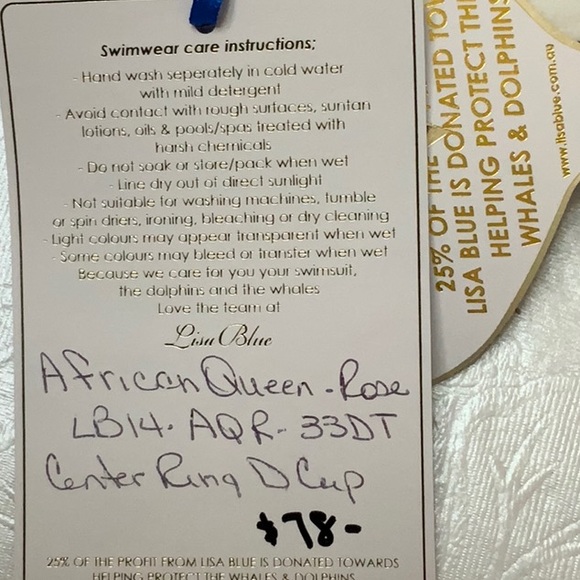 Swimwear care instructions;
- Hand wash seperately in cold water
with mild detergent
- Avoid contact with rough surfaces, suntan
lotions, oils & pools/spas treated with
harsh chemicals
- Do not soak or store/pack when wet
- Line dry out of direct sunlight
- Not suitable for washing machines, tumble
or spin driers, ironing, bleaching or dry cleaning
- Light colours may appear transparent when wet
- Some colours may bleed or transfer when wet
Because we care for you your swimsuit,
the dolphins and the whales
Love the team at
Lisa Blue
African Queen - Rose
LB14 - AQR - 33DT
Center Ring D Cup
$78-
25% OF THE PROFIT FROM LISA BLUE IS DONATED TOWARDS
HELPING PROTECT THE WHALES & DOLPHINS
25% OF THE
LISA BLUE IS DONATED TOW
HELPING PROTECT TH
WHALES & DOLPHINS
www.lisablue.com.au